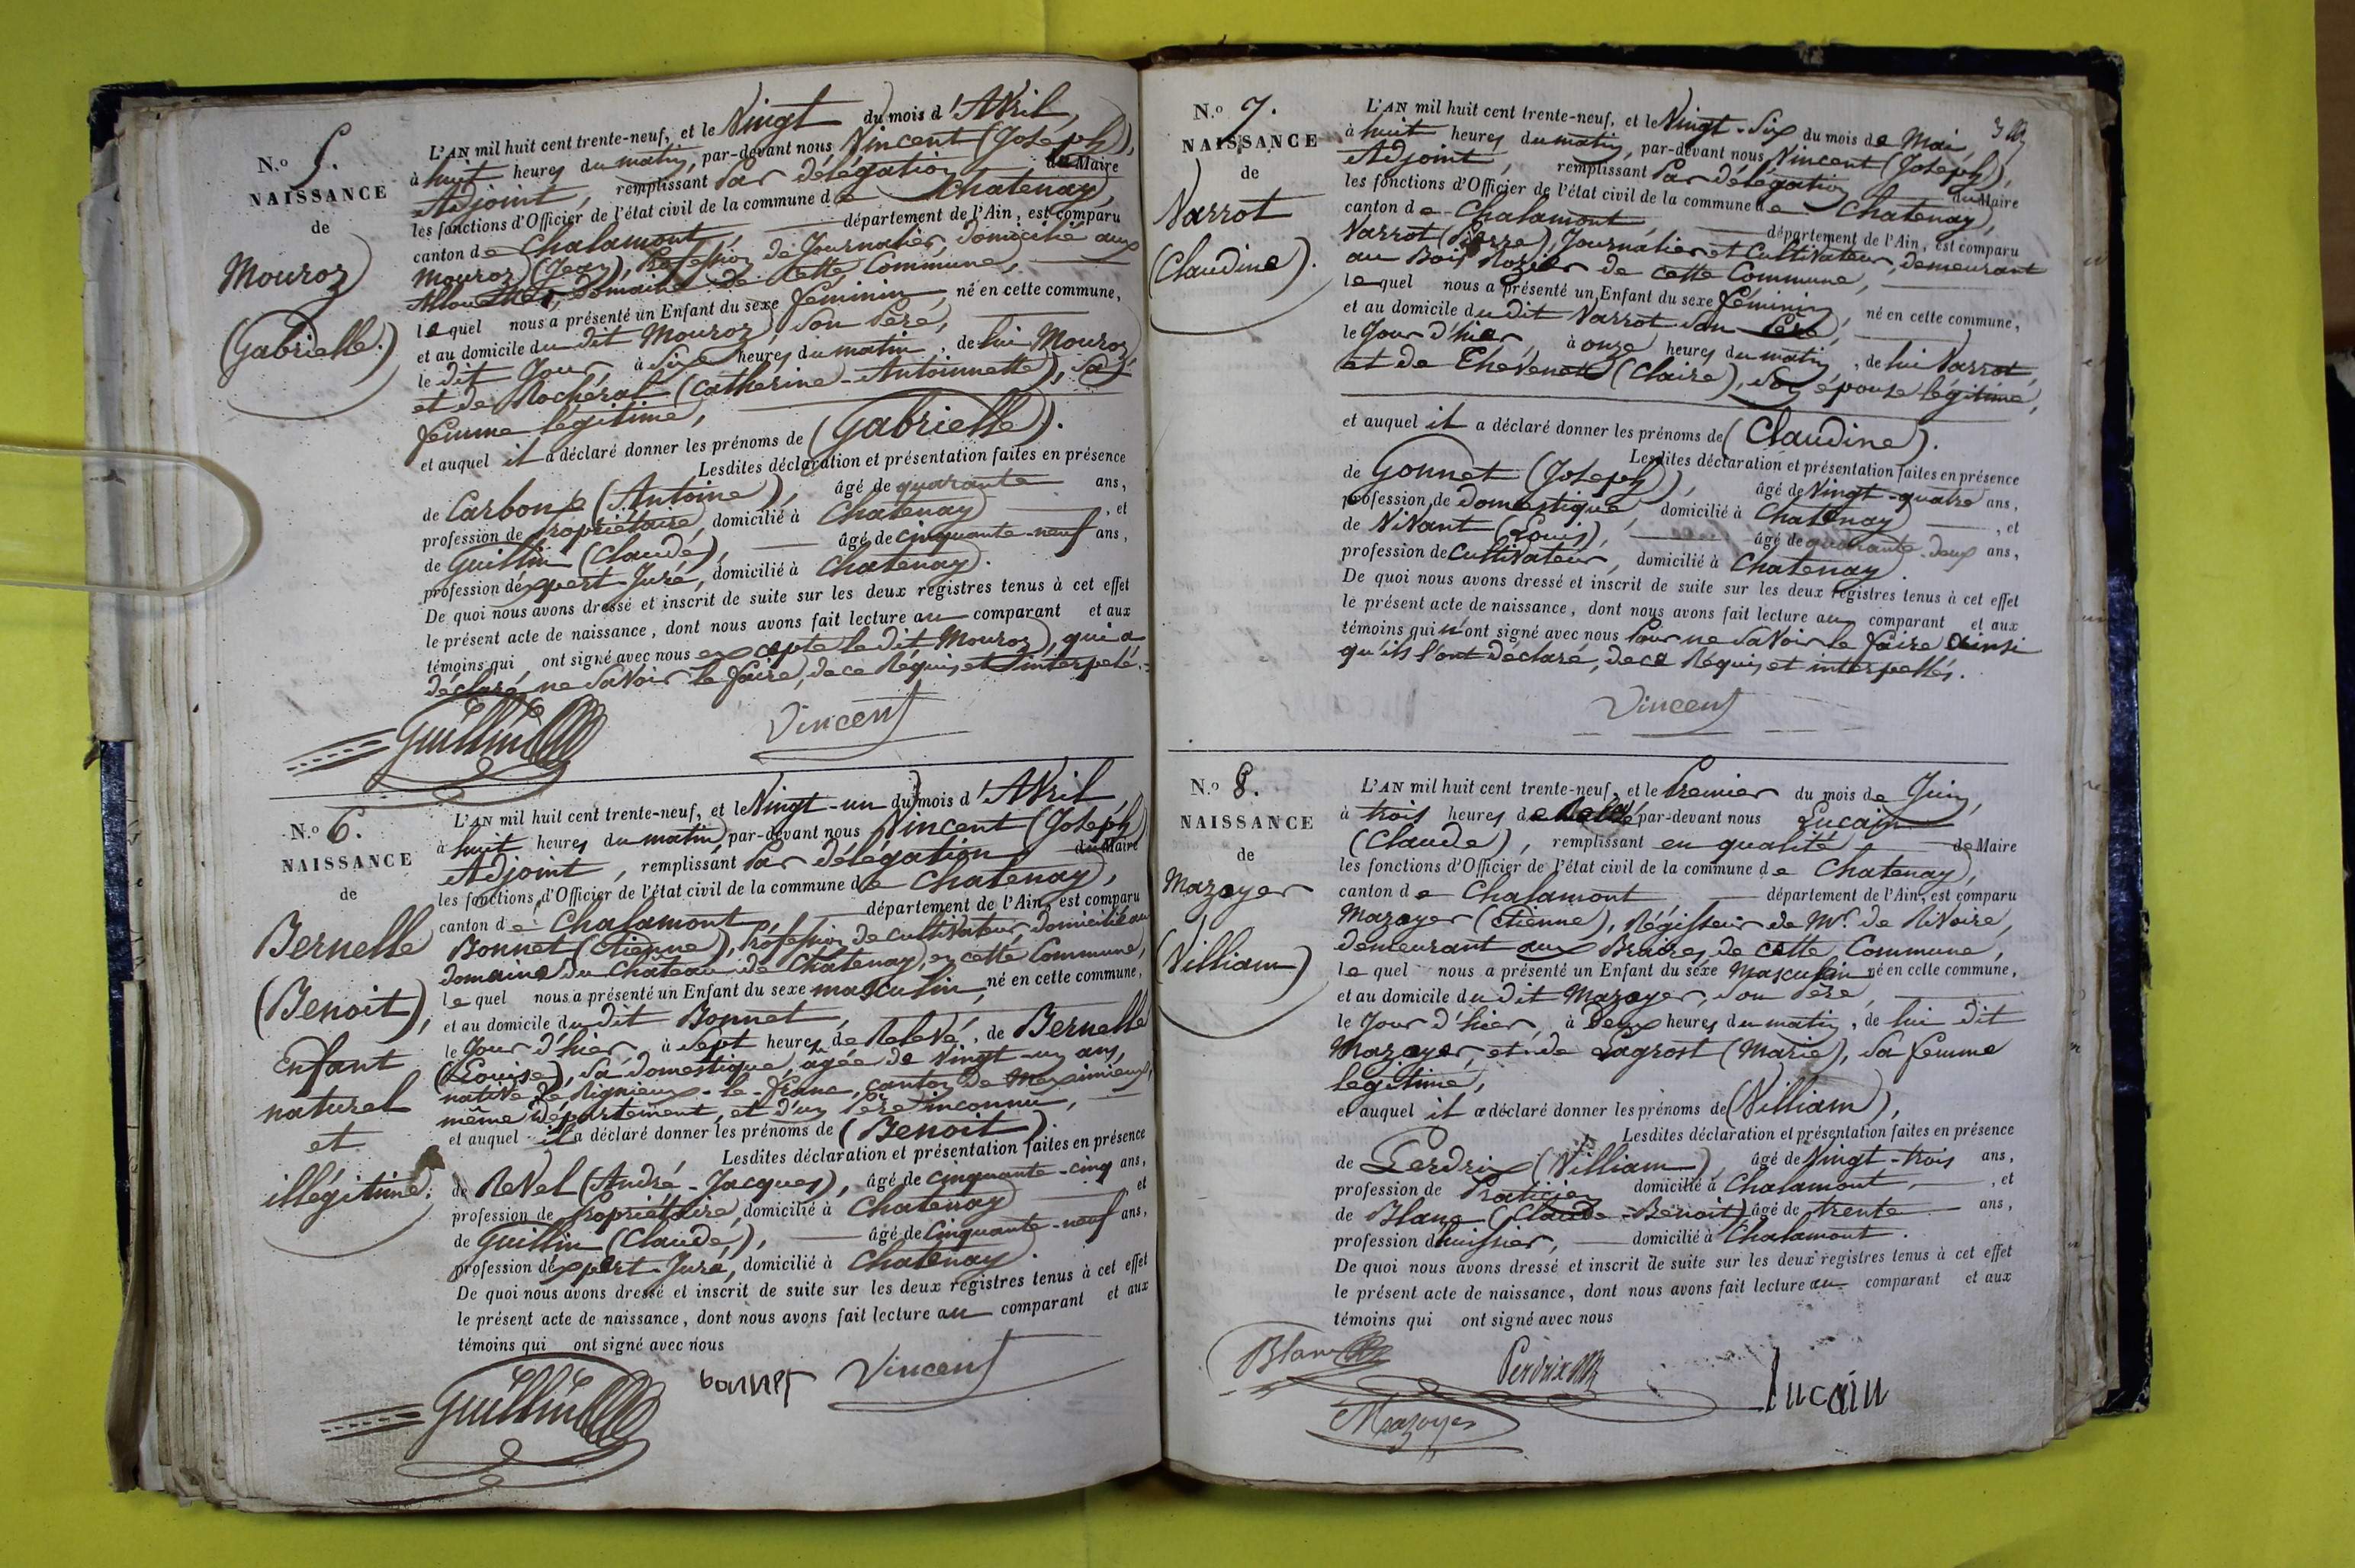 N.o 5.
NAISSANCE
de
Mouroz
(Gabrielle.)
L'AN mil huit cent trente-neuf, et le Vingt du mois d'Avril,
à huit heures du matin, par-devant nous Vincent (Joseph),
Adjoint, remplissant Par délégation du Maire
les fonctions d'Officier de l'état civil de la commune de Chatenay,
canton de Chalamont, département de l'Ain, est comparu
Mouroz (Jean), Profession de Journalier, domicilié aux
Domaine de cette Commune,
lequel nous a présenté un Enfant du sexe féminin, né en cette commune,
et au domicile du dit Mouroz, Son Père,
le dit Jour à Six heures du matin, de lui Mouroz,
et de Rochéral (Catherine-Antoinnette), Sa
femme légitime,
et auquel il a déclaré donner les prénoms de (Gabrielle).
Lesdites déclaration et présentation faites en présence
de Carbon (Antoine), âgé de quarante ans,
profession de Propriétaire, domicilié à Chatenay, et
de Guillin (Claude), âgé de cinquante-neuf ans,
profession d'expert-Juré, domicilié à Chatenay.
De quoi nous avons dressé et inscrit de suite sur les deux registres tenus à cet effet
le présent acte de naissance, dont nous avons fait lecture au comparant et aux
témoins qui ont signé avec nous excepté le dit Mouroz, qui a
déclaré ne Savoir le faire, de ce Réquis et interpelé.
Guillin
Vincent
N.o 6.
NAISSANCE
de
Bernelle
(Benoit),
Enfant
naturel
et
illégitime.
L'AN mil huit cent trente-neuf, et le Vingt-un du mois d'Avril
à huit heures du matin, par-devant nous Vincent (Joseph)
Adjoint, remplissant Par délégation du Maire
les fonctions d'Officier de l'état civil de la commune de Chatenay,
canton de Chalamont, département de l'Ain, est comparu
Bonnet (Etienne), Profession de cultivateur, domicilié au
domaine du Château de Châtenay, en cette Commune,
lequel nous a présenté un Enfant du sexe masculin, né en cette commune,
et au domicile du dit Bonnet,
le Jour d'hier, à Sept heures de Relevé, de Bernelle
(Louise), Sa domestique, agée de Vingt-un ans,
native de Rignieux-le-franc, canton de Meximieux,
même Département, et d'un Père inconnu,
et auquel il a déclaré donner les prénoms de (Benoit).
Lesdites déclaration et présentation faites en présence
de Revel (André-Jacques), âgé de cinquante-cinq ans,
profession de Propriétaire, domicilié à Chatenay et
de Guillin (Claude), âgé de Cinquante-neuf ans,
profession d'expert-Juré, domicilié à Chatenay.
De quoi nous avons dressé et inscrit de suite sur les deux registres tenus à cet effet
le présent acte de naissance, dont nous avons fait lecture au comparant et aux
témoins qui ont signé avec nous
Guillin
bonnet
Vincent
N.o 7.
NAISSANCE
de
Varrot
(Claudine).
L'AN mil huit cent trente-neuf, et le Vingt-Six du mois de Mai,
à huit heures du matin, par-devant nous Vincent (Joseph),
Adjoint, remplissant Par délégation du Maire
les fonctions d'Officier de l'état civil de la commune de Chatenay,
canton de Chalamont, département de l'Ain, est comparu
Varrot (Pierre), Journalier et Cultivateur, demeurant
au Bois Rozier de cette Commune,
lequel nous a présenté un Enfant du sexe féminin, né en cette commune,
et au domicile du dit Varrot Son Père,
le Jour d'hier, à onze heures du matin, de lui Varrot,
et de Chevenet (Claire), Son épouse légitime,
et auquel il a déclaré donner les prénoms de (Claudine).
Lesdites déclaration et présentation faites en présence
de Gonnet (Joseph), âgé de Vingt-quatre ans,
profession de Domestique, domicilié à Chatenay, et
de Vivant (Louis), âgé de quarante-deux ans,
profession de Cultivateur, domicilié à Chatenay.
De quoi nous avons dressé et inscrit de suite sur les deux registres tenus à cet effet
le présent acte de naissance, dont nous avons fait lecture au comparant et aux
témoins qui n'ont signé avec nous Pour ne Savoir le faire ainsi
qu'ils l'ont Déclaré, de ce Réquis et interpellés.
Vincent
N.o 8.
NAISSANCE
de
Mazoyer
(Villiam)
L'AN mil huit cent trente-neuf, et le Premier du mois de Juin,
à trois heures de Relevé par-devant nous Lucain
(Claude), remplissant en qualité de Maire
les fonctions d'Officier de l'état civil de la commune de Chatenay,
canton de Chalamont, département de l'Ain, est comparu
Mazoyer (Etienne), Régisseur de Mr. de Rivoire,
demeurant aux Braires de cette Commune,
lequel nous a présenté un Enfant du sexe Masculin né en cette commune,
et au domicile du dit Mazoyer, Son Père,
le Jour d'hier, à Deux heures du matin, de lui dit
Mazoyer, et de Lagrost (Marie), Sa femme
legitime,
et auquel il a déclaré donner les prénoms de (Villiam),
Lesdites déclaration et présentation faites en présence
de Perdrix (Villiam), âgé de Vingt-trois ans,
profession de Praticien domicilié à Chalamont, et
de Blanc (Claude-Benoit) âgé de trente ans,
profession d'huissier, domicilié à Chalamont.
De quoi nous avons dressé et inscrit de suite sur les deux registres tenus à cet effet
le présent acte de naissance, dont nous avons fait lecture au comparant et aux
témoins qui ont signé avec nous
Blanc
Perdrix
Lucain
Mazoyer